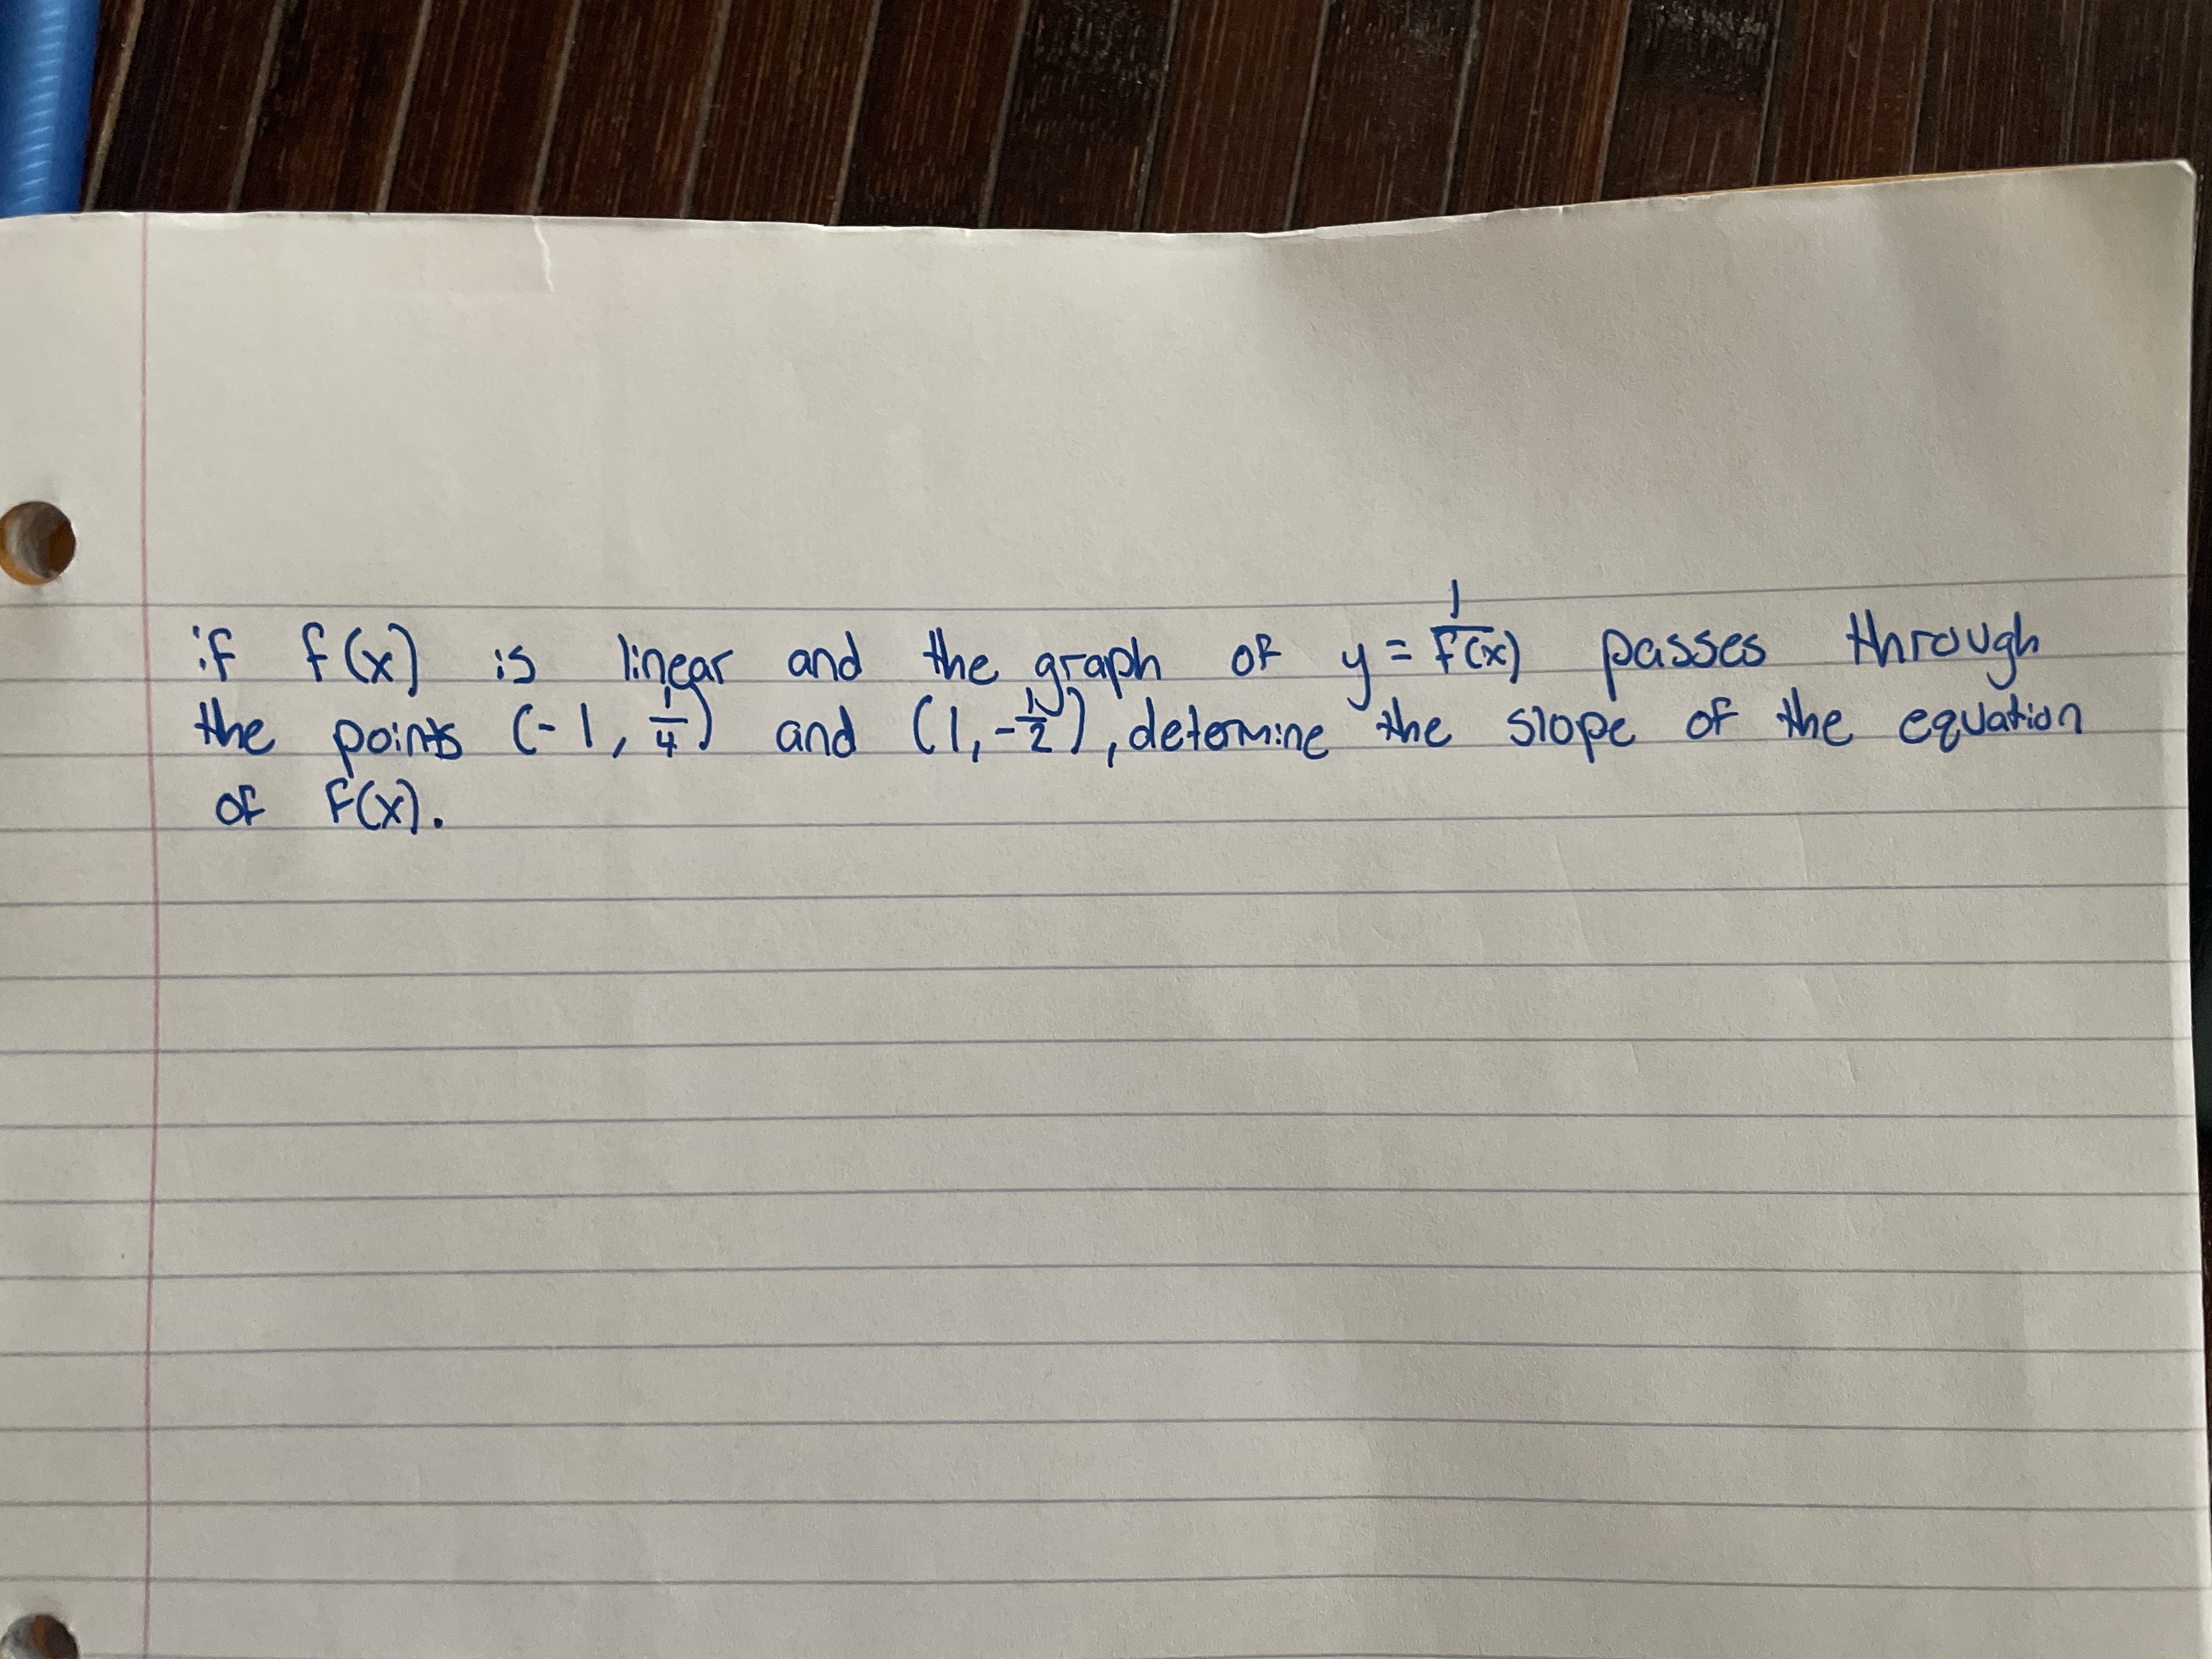 if f(x) is linear and the graph of y = 1/f(x) passes through
the points (-1, 1/4) and (1, -1/2), determine the slope of the equation
of F(x).